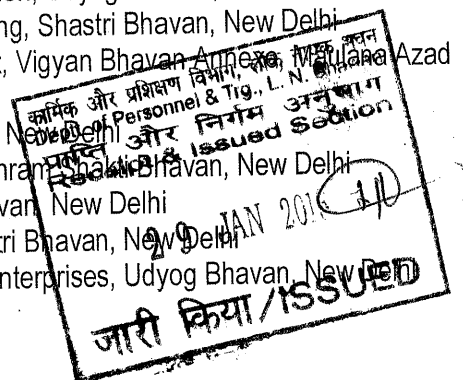 ng, Shastri Bhavan, New Delhi
, Vigyan Bhavan Annexe, Maulana Azad
New Delhi
Shakti Bhavan, New Delhi
van, New Delhi
tri Bhavan, New Delhi
nterprises, Udyog Bhavan, New Delhi
कार्मिक और प्रशिक्षण विभाग,
Deptt. of Personnel & Trg., L. N.
प्राप्ति और निर्गम अनुभाग
& Issued Section
29 JAN
जारी किया/ISSUED